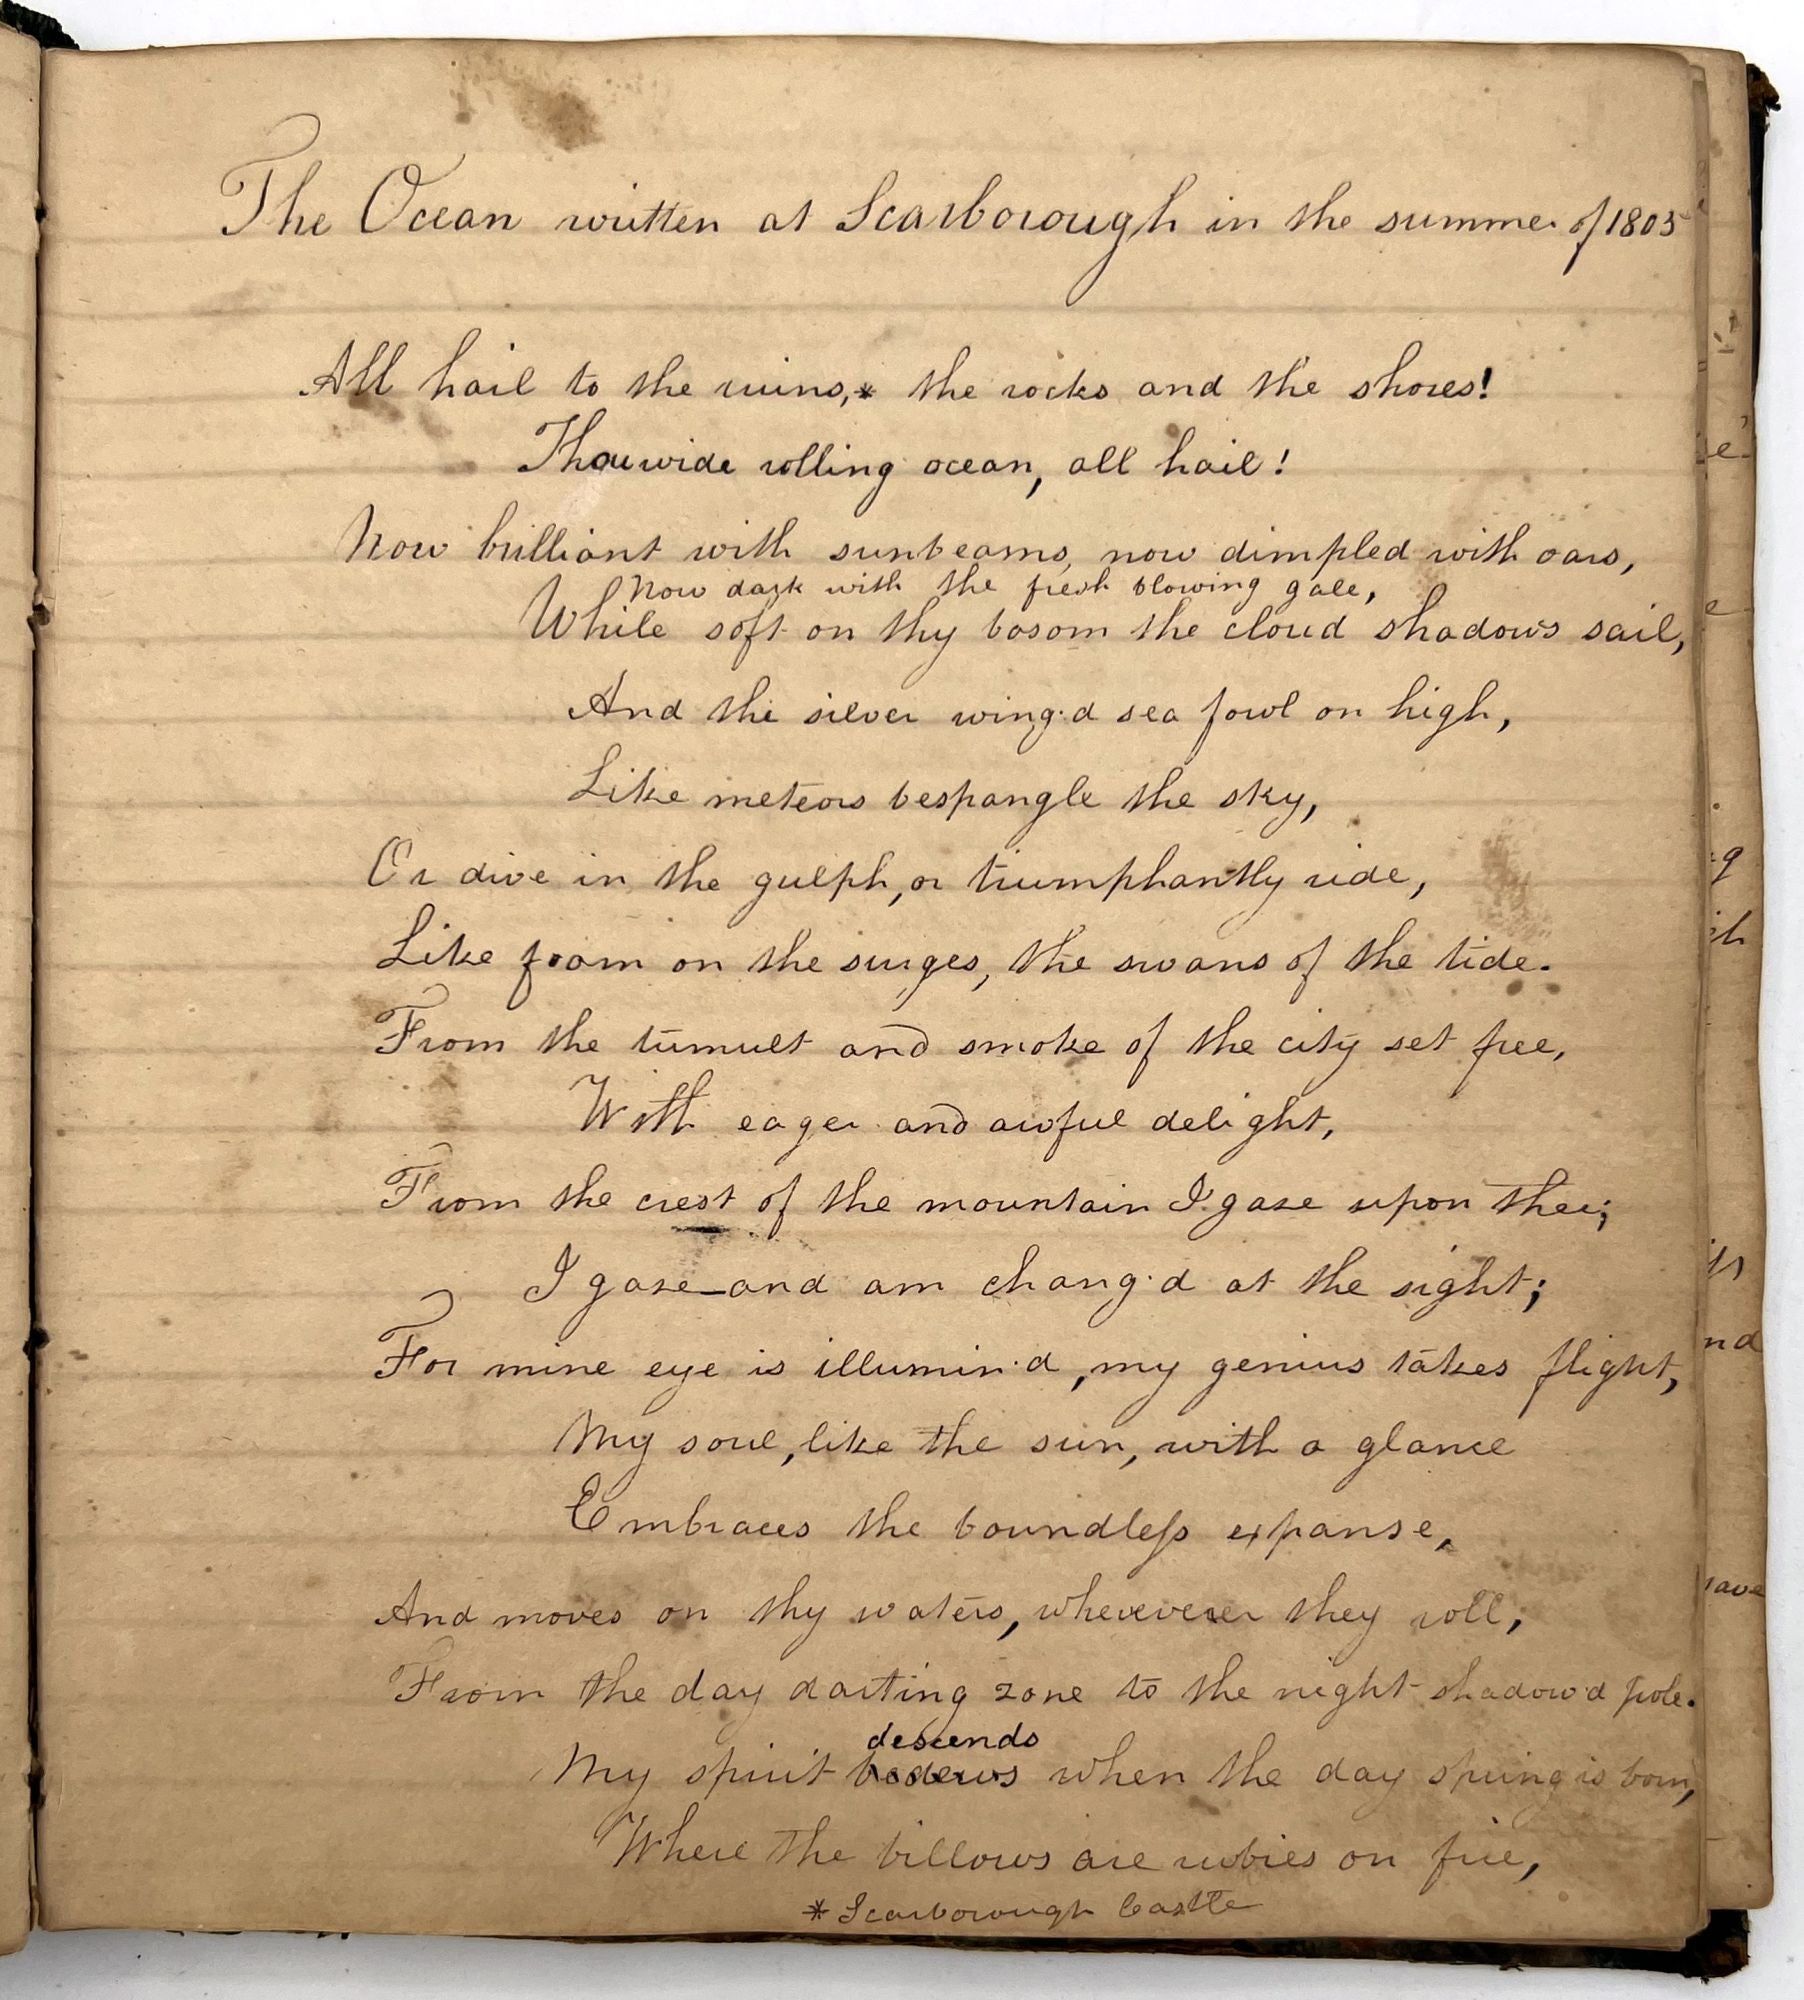 The Ocean written at Scarborough in the summer of 1805
All hail to the ruins,* the rocks and the shores!
Thou wide rolling ocean, all hail!
Now brilliant with sunbeams, now dimpled with oars,
Now dark with the fresh blowing gale,
While soft on thy bosom the cloud shadows sail,
And the silver wing'd sea fowl on high,
Like meteors bespangle the sky,
Or dive in the gulph, or triumphantly ride,
Like foam on the surges, the swans of the tide.
From the tumult and smoke of the city set free,
With eager and awful delight,
From the crest of the mountain I gaze upon thee;
I gaze_and am chang'd at the sight;
For mine eye is illumin'd, my genius takes flight,
My soul, like the sun, with a glance
Embraces the boundleſs expanse,
And moves on thy waters, wherever they roll,
From the day darting zone to the night shadow'd pole.
descends
My spirit when the day spring is born,
Where the billows are rubies on fire,
* Scarborough Castle